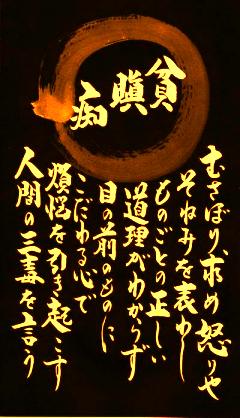 貧瞋痴
むさぼり求め怒りや
そねみを表わし
ものごとの正しい
道理がわからず
目の前のものに
こだわる心で
煩悩を引き起こす
人間の三毒を言う